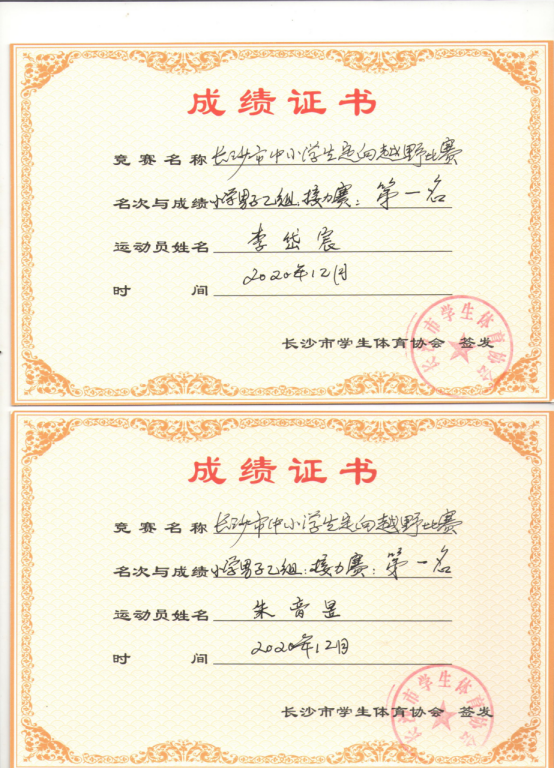 成绩证书
竞赛名称 长沙市中小学生定向越野比赛
名次与成绩 小学男子乙组:接力赛:第一名
运动员姓名 李岱宸
时间 2020年12月
长沙市学生体育协会 签发
长沙市学生体育协会
成绩证书
竞赛名称 长沙市中小学生定向越野比赛
名次与成绩 小学男子乙组:接力赛:第一名
运动员姓名 朱音昱
时间 2020年12月
长沙市学生体育协会 签发
长沙市学生体育协会